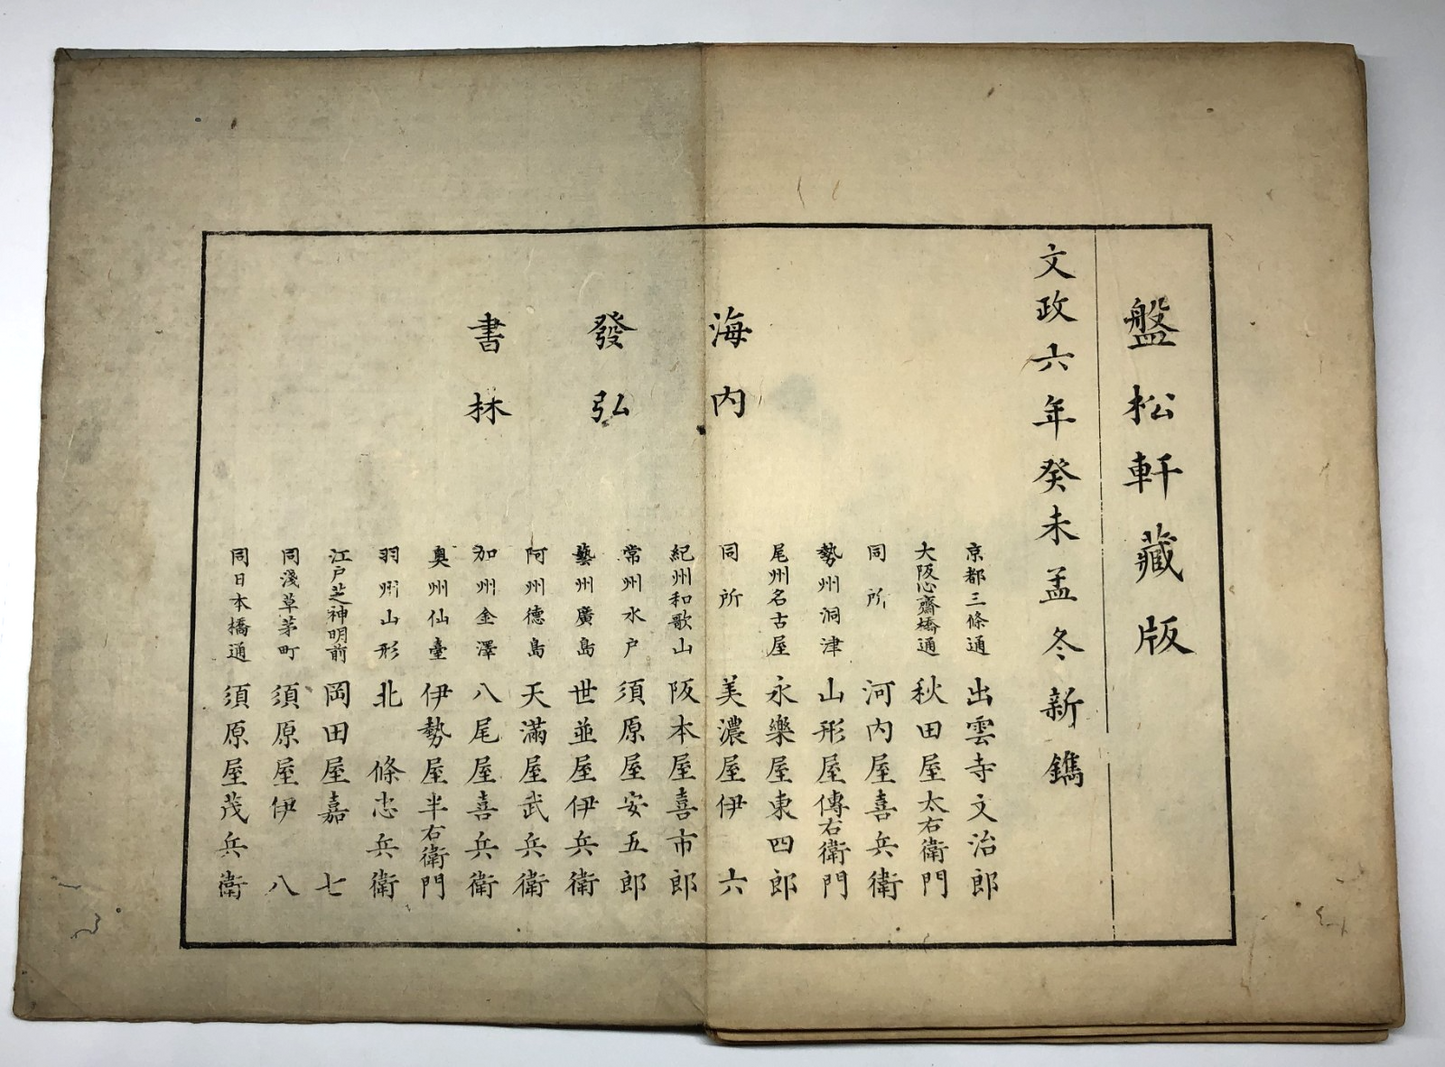 盤松軒藏版
文政六年癸未孟冬新鐫
海内
發弘
書林
京都三條通 出雲寺文治郎
大阪心齋橋通 秋田屋太右衛門
同所 河内屋喜兵衛
勢州洞津 山形屋傳右衛門
尾州名古屋 永樂屋東四郎
同所 美濃屋伊六
紀州和歌山 阪本屋喜市郎
常州水戸 須原屋安五郎
藝州廣島 世並屋伊兵衛
阿州德島 天滿屋武兵衛
加州金澤 八尾屋喜兵衛
奥州仙臺 伊勢屋半右衛門
羽州山形 北條忠兵衛
江戸芝神明前 岡田屋嘉七
同淺草茅町 須原屋伊八
同日本橋通 須原屋茂兵衛